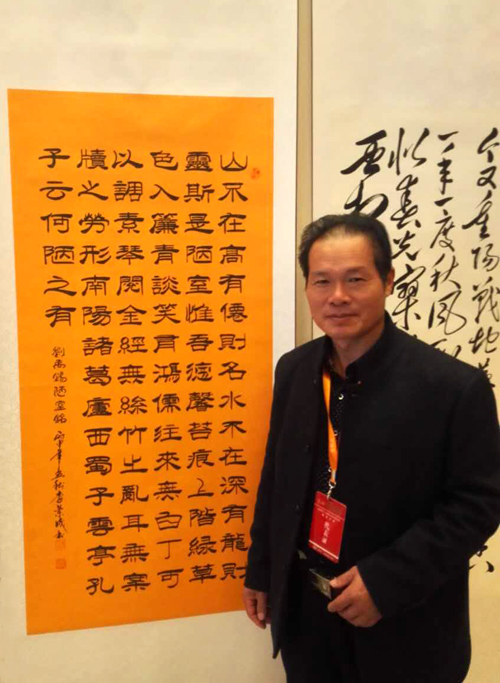 山不在高有僊則名水不在深有龍則
靈斯是陋室惟吾德馨苔痕上階緣草
色入簾青談笑有鴻儒往來无白丁可
以調素琴閱金經無絲竹之亂耳無案
牘之勞形南陽諸葛廬西蜀子雲亭孔
子云何陋之有
劉禹錫陋室銘 丙申年
今又重陽戰地
一年一度秋風
似春光寥